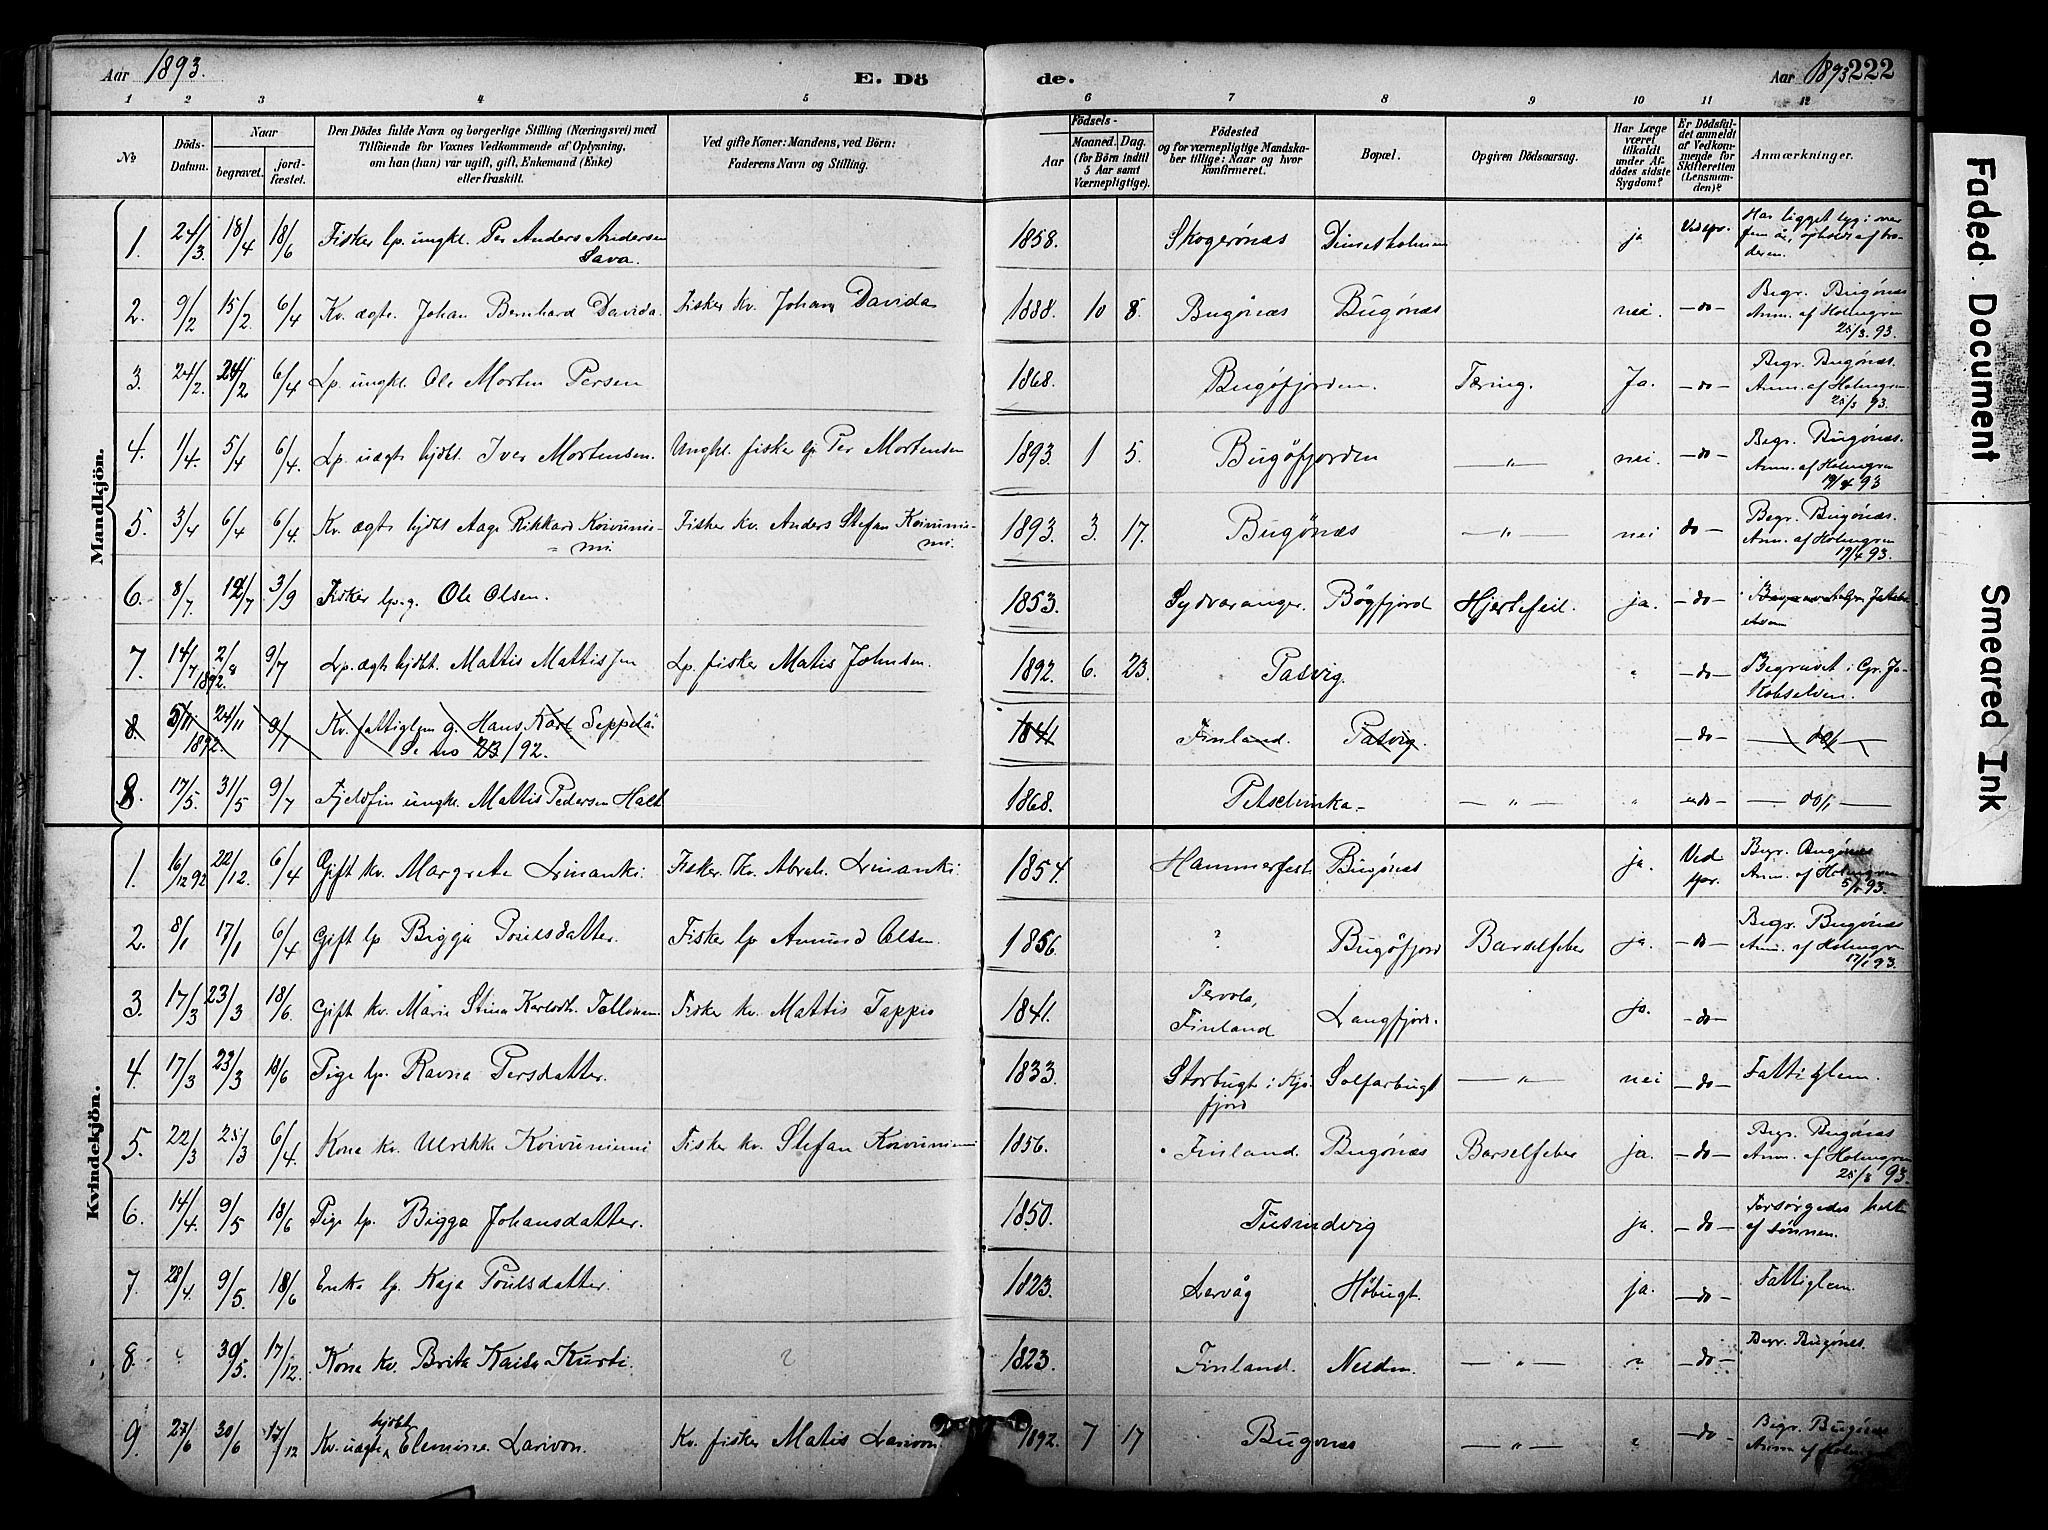 Aar 1893.
E. Dö
de.
Aar 1893
222
1 2 3 4 5 6 7 8 9 10 11 12
No
Döds-Datum.
Naar
begravet.
jordfæstet.
Den Dödes fulde Navn og borgerlige Stilling (Næringsvei) med
Tilföiende for Voxnes Vedkommende af Oplysning,
om han (hun) var ugift, gift, Enkemand (Enke)
eller fraskilt.
Ved gifte Koner: Mandens, ved Börn:
Faderens Navn og Stilling.
Födsels-
Aar
Maaned. Dag.
(for Börn indtil
5 Aar samt
Værnepligtige).
Födested
og for værnepligtige Mandska-
ber tillige: Naar og hvor
konfirmeret.
Bopæl.
Opgiven Dödsaarsag.
Har Læge
været
tilkaldt
under Af-
dödes sidste
Sygdom?
Er Dödsfal-
det anmeldt
af Vedkom-
mende for
Skifteretten
(Lensman-
den)?
Anmærkninger.
Mandkjön.
1. 24/3. 18/4 18/6 Fisker lp. ungkl. Per Anders Andersen Sava. 1858. Skogerönæs ja Har ligget syg i over
2. 9/2 15/2. 6/4 Kv. ægte. Johan Bernhard Davida. Fisker kv. Johan Davida 1888 10 8. Bugönæs Bugönæs nei. — do — Begr. Bugönæs Anm. af Holmgren 25/3. 93.
3. 24/2. 24/2. 6/4 Lp. ungkl. Ole Morten Persen 1868. Bugöfjorden. Tæring. Ja. — do — Begr. Bugönæs. Anm. af Holmgren 25/3 93.
4. 1/4. 5/4 6/4. Lp. uægte hjdbt. Iver Mortensen. Ungkl. fisker lp Per Mortensen 1893. 1 5. Bugöfjorden — „ — nei. — do — Begr. Bugönæs. Anm. af Holmgren 19/4 93
5. 3/4 6/4 6/4. Kv. ægte hjdbt Aage Rikkard Koivunie- mi. Fisker kv. Anders Stefan Koivunie- mi. 1893. 3. 17. Bugönæs — „ — nei do — Begr. Bugönæs. Anm. af Holmgren 19/4 93.
6. 8/7. 12/7 3/9 Fisker lp. g. Ole Olsen. 1853. Sydvaranger. Bögfjord Hjertefeil. ja. — do —
7. 14/7 1892. 2/8 9/7 Lp. ægte hjdbt. Mattis Mattisen Lp. fisker Matis Johnsen. 1892. 6. 23. Pasvig. " — do — Begravet i Gr. Ja- kobselven.
8 5/11 1892. 24/11 9/7 Kv. fattiglem g. Hans Karl Seppelä Se no 23/92. 1841 Finland. Pasvig. — do — — do/, —
8. 17/5. 31/5 9/7 Fjeldfin ungk. Mattis Pedersen Halt 1868. — „ — " — do — — do/, —
Kvindekjön.
1. 16/12 92 22/12. 6/4 Gift kv. Margrete Linanki Fisker. Kv. Abrah. Linanki. 1854. Hammerfest Bugönæs ja. Ved spr. Begr. Bugönæs Anm. af Holmgren 93.
2. 8/1 17/1 6/4 Gift lp Bigga Poulsdatter. Fisker lp Amund Olsen. 1856. ? Bugöfjord Barselfeber ja. — do — Begr. Bugönæs Anm. af Holmgren 17/1 93.
3. 17/3 23/3 18/6. Gift kv. Maria Stina Karlsdtr. Fisker kv. Mattis Tappio 1841. Tervola, Finland Langfjord. ja. — do —
4. 17/3 23/3 18/6 Pige lp. Ravna Persdatter. 1833. Storbugt i Kjö- fjord Solfarbugt — „ — nei — do — Fattiglem.
5. 22/3 25/3 6/4. Kone kv. Ulrikke Koivuniemi Fisker kv. Stefan Koivuniemi 1856. Finland. Bugönæs Barselfeber ja. — do — Begr. Bugönæs Anm. af Holmgren 25/3 93.
6. 14/4. 9/5 18/6 Pige lp. Bigga Johansdatter. 1850. Tusindvig ja. — do — Forsörgedes helt af sönnen.
7. 28/4. 9/5. 18/6 Enke lp. Kaja Poulsdatter. 1823. Lervåg Höbugt. ja. — do — Fattiglem.
8. 30/5. 17/12. Kone kv. Brita Kaisa Kurti. ? 1823. Finland. Neiden. — „ — " — do — Begr. Bugönæs.
9. 27/6 30/6 17/12 Kv. uægte hjdbt Elemine Larivon. Kv. fisker Matis Larivon 1892. 7 17 Bugönæs — „ — " — do — Begr. Bugönæs Anm af Holmgren
Faded Document
Smeared Ink